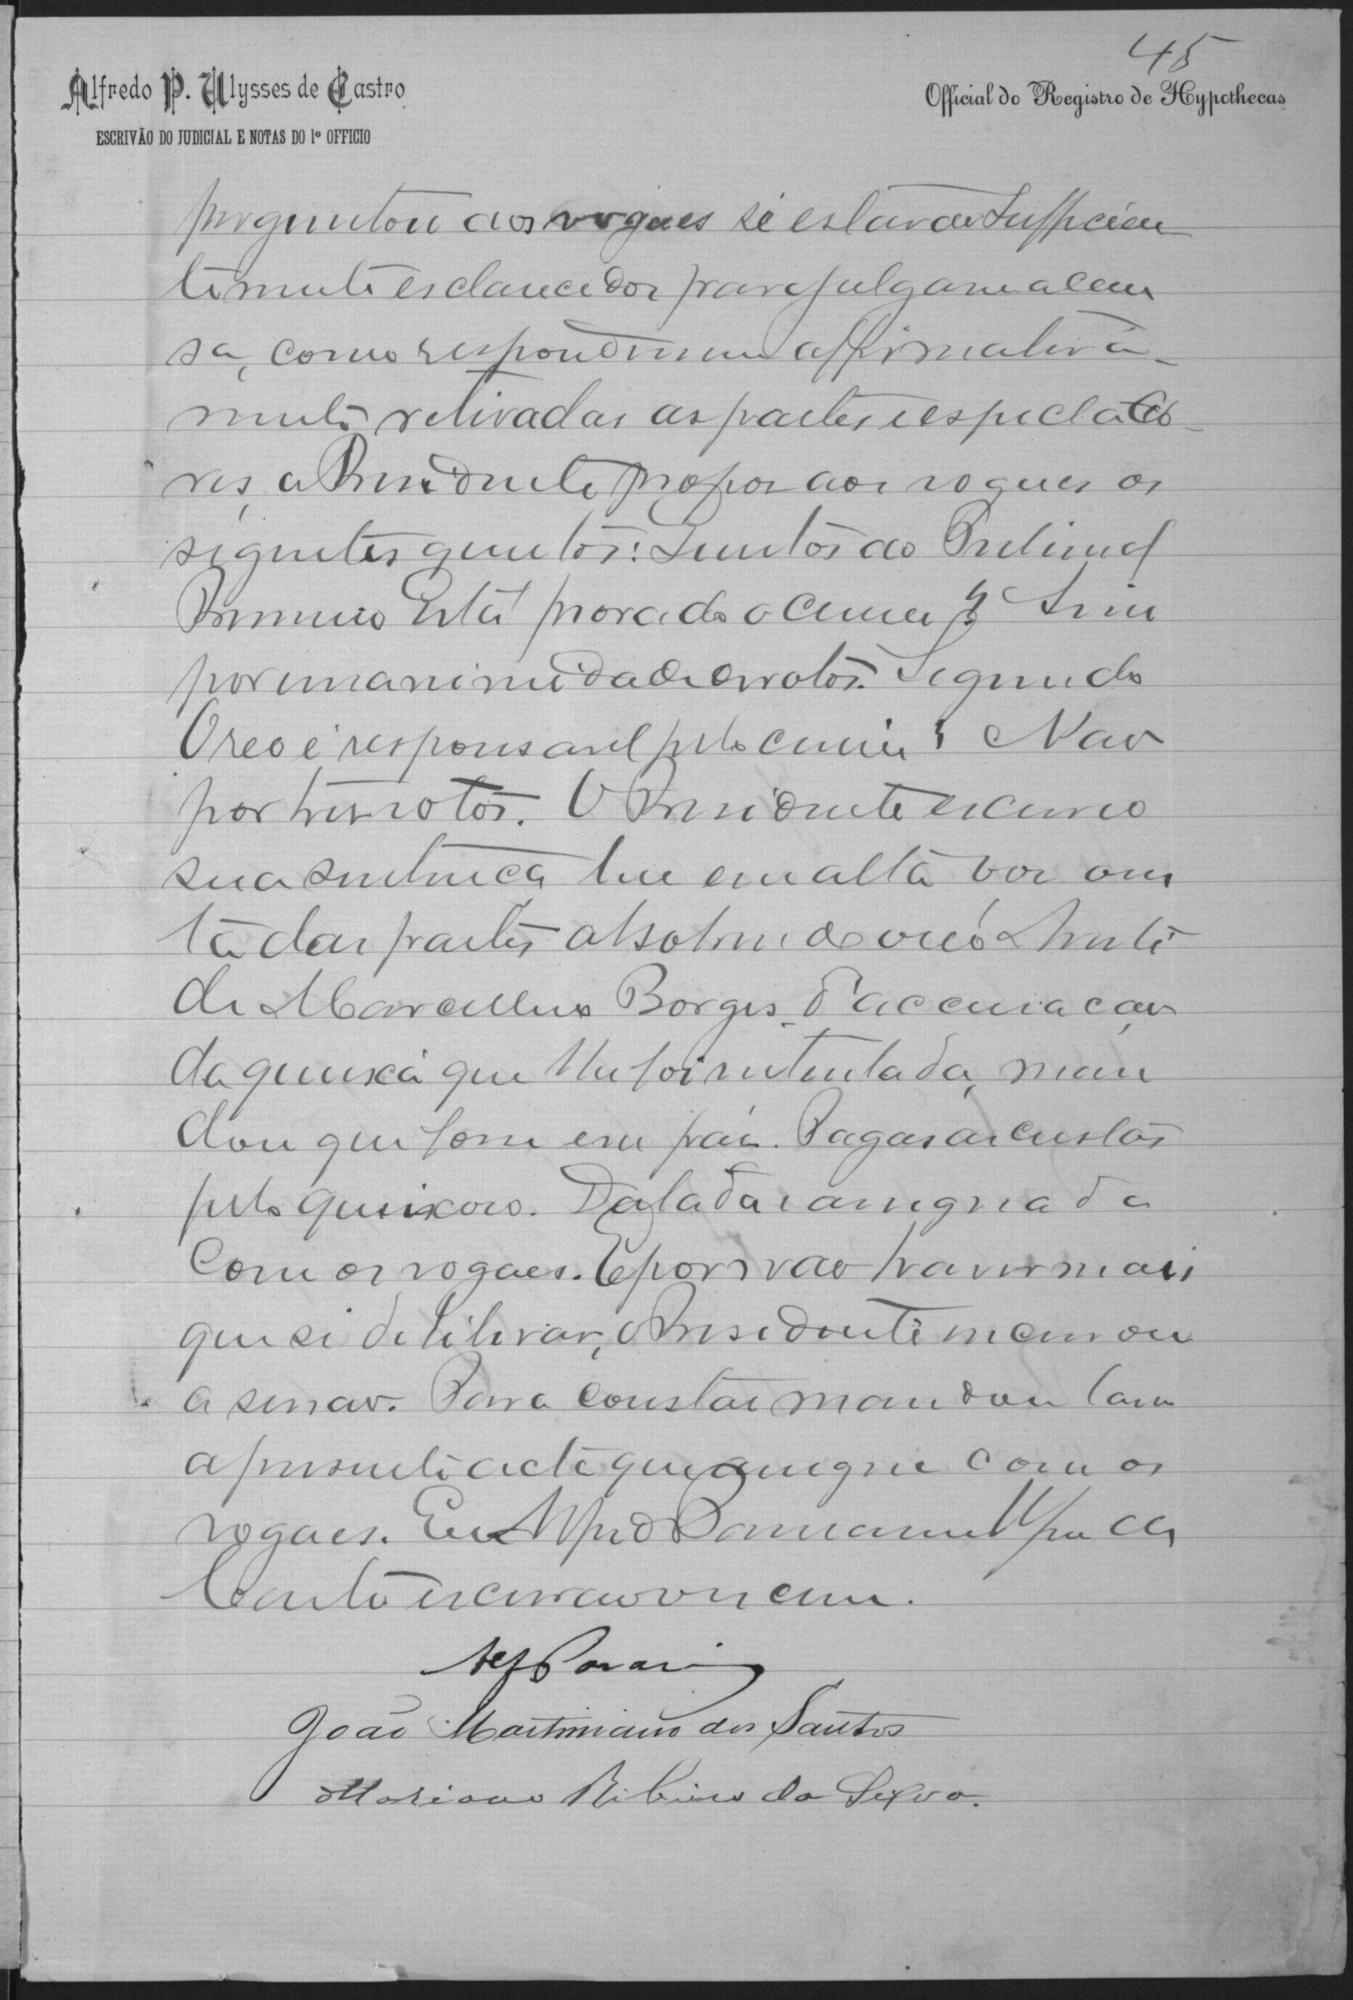 45
Alfredo P. Ulysses de Castro
Official do Registro de Hypothecas
ESCRIVÃO DO JUDICIAL E NOTAS DO 1º OFFICIO
perguntou aos vogaes se estavão sufficien
temente esclarecidos para julgarem a cau
sa, como respondessem affirmativa-
mente retiradas as partes e espectado-
res, o Presidente propos aos vogaes os
seguintes quesitos: Quesitos do Tribunal
Primeiro Está provado o crime? Sim
por unanimidade de votos. Segundo
O reo é responsavel pelo crime? Não
por tres votos. O Presidente escreveo
sua sentença leu em alta voz
das partes absolvendo o reó
de Marcellino Borges d'accusação
da queixa que lhe foi intentada, man
dou que fosse em paz. Pagas as custas
pelo queixoso. Datada e assignada
com os vogaes. E por não haver mais
que se deliberar, o Presidente encerrou
a sessão. Para constar mandou lavrar
a presente acta que assigna com os
vogaes. Eu
escrivão escrevi.
João Martiniano dos Santos
Mariano Ribeiro da Silva.